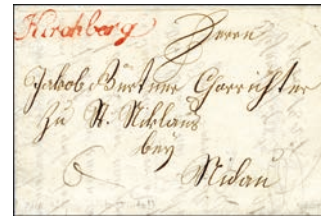 Kirchberg
Herrn
Jakob Gürtner Chorrichter
zu St. Niklaus
bey
Nidau